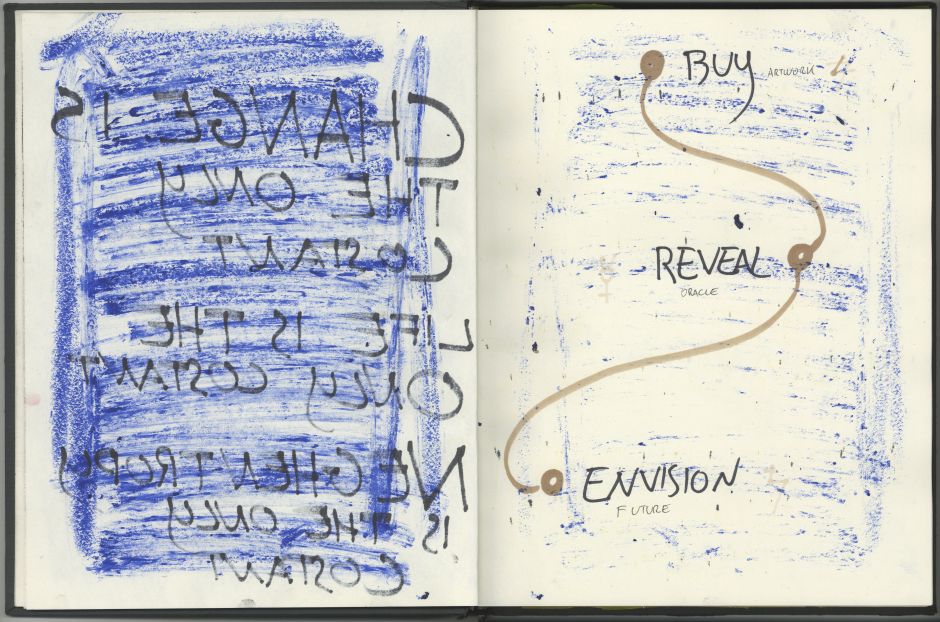 CHANGE IS
THE ONLY
COSTANT
LIFE IS THE
ONLY COSTANT
NEGHENTROPY
IS THE ONLY
COSTANT
BUY ARTWORK
REVEAL
ORACLE
ENVISION
FUTURE